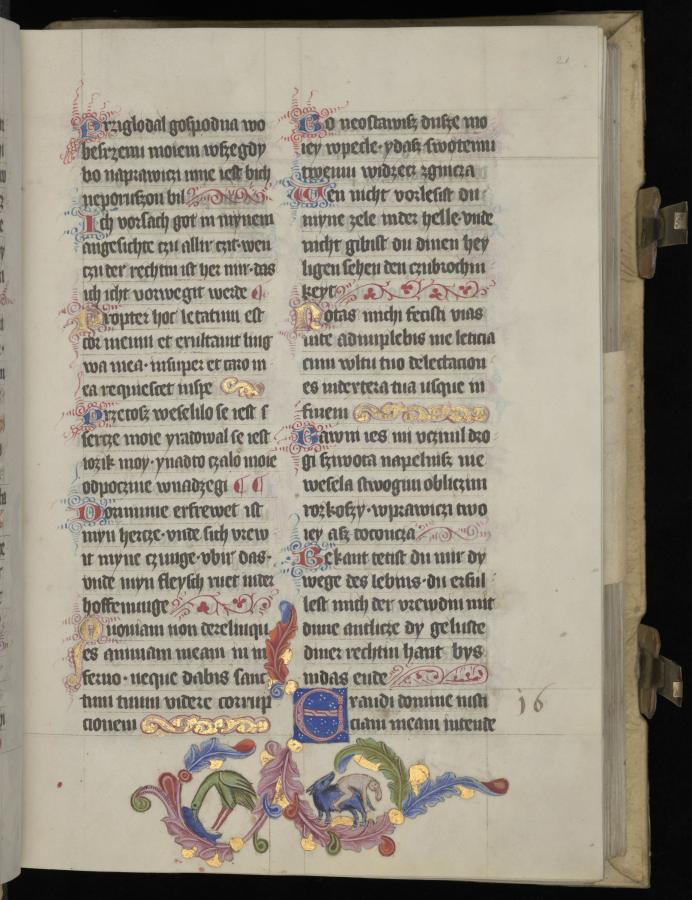 21
Prziglodal gospodna wo
beſrzemi moiem wſzegdy
bo naprawici mne ieſt bich
neporuſzon bil
Ich vorſach got in mynem
angeſichte czu allir czit wen
czu der rechtin iſt her mir das
ich icht vorwegit werde
Propter hoc letatum eſt
cor meum et exultauit ling
wa mea · inſuper et caro m
ea requieſcet inſpe
Przetoſz weſelilo ſe ieſt ſ
ſercze moie yradowal ſe ieſt
iozik moy · ynadto czalo moie
odpoczine wnadzegi
Dorumme erfrewet iſt
myn hercze · vnde ſich vrew
it myne czunge · vbir das ·
vnde myn fleyſch ruet inder
hoffenunge
Quoniam non derelinqu
es animam meam in in
ferno · neque dabis ſanc
tum tuum videre corrup
cionem
Bo neoſtawiſz duſze mo
iey wpecle · ydaſz ſwotemu
twemu widzecz zgnicza
Wen nicht vorleſiſt du
myne zele inder helle · vnde
nicht gibiſt du dinen hey
ligen ſehen den czubrochin
keyt
Notas michi feciſti vias
uite adinplebis me leticia
cum wltu tuo delectacion
es indextera tua uſque in
finem
Znawm ies mi vczinil dro
gi ſzwota napelniſz me
weſela ſtwogim obliczim
rozkoſzy · wprawici two
iey aſz dococza
Bekant tetiſt du mir dy
wege des lebins · du erful
leſt mich der vrewdin mit
dime antlicze dy geluſte
diner rechtin hant bys
indas ende
Exaudi domine iuſti
ciam meam intende
16